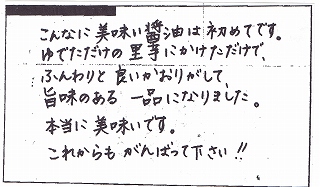 こんなに美味い醤油は初めてです。
ゆでただけの里芋にかけただけで、
ふんわりと良いかおりがして、
旨味のある一品になりました。
本当に美味いです。
これからもがんばって下さい!!